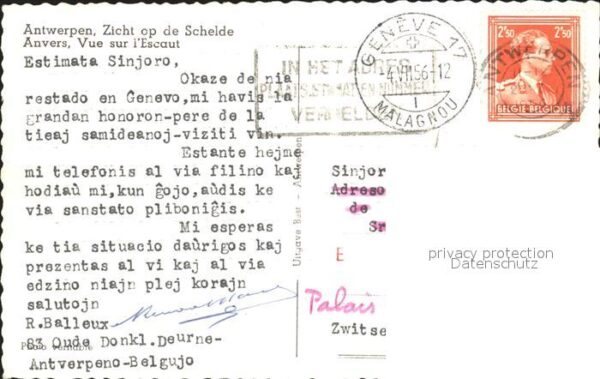 Antwerpen, Zicht op de Schelde
Anvers, Vue sur l'Escaut
Estimata Sinjoro,
Okaze de nia
restado en Genevo,mi havis la
grandan honoron-pere de la
tieaj samideanoj-viziti vin.
Estante hejme
mi telefonis al via filino kaj
hodiaŭ mi,kun ĝojo,aŭdis ke
via sanstato pliboniĝis.
Mi esperas
ke tia situacio daŭrigos kaj
prezentas al vi kaj al via
edzino niajn plej korajn
salutojn
R.Balleux
83 Oude Donkl.Deurne-
Antverpeno-Belgujo
Uitgave Best - Antwerpen
IN HET ADRES
VERMELD
GENÈVE 17
56-12
1
MALAGNOU
2F50 2F50
BELGIE BELGIQUE
ANTWERPEN
Sinjor
Adreso
de
Sr
E
Palais
Zwitse
privacy protection
Datenschutz